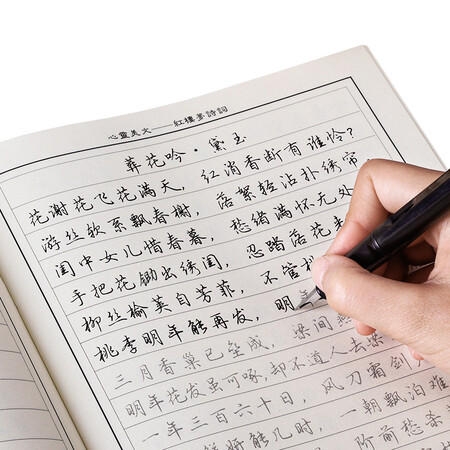 心靈美文——紅樓梦詩詞
葬花吟·黛玉
花谢花飞花满天，红消香断有谁怜？
游丝软系飘春榭，落絮轻沾扑绣帘
闺中女儿惜春暮，愁绪满怀无处
手把花锄出绣闺，忍踏落花去
柳丝榆荚自芳菲，不管
桃李明年能再发，明
三月香巢已垒成，梁间
明年花发虽可啄，却不道人去梁
一年三百六十日，风刀霜剑
鲜妍能几时，一朝飘泊难
阶前愁杀